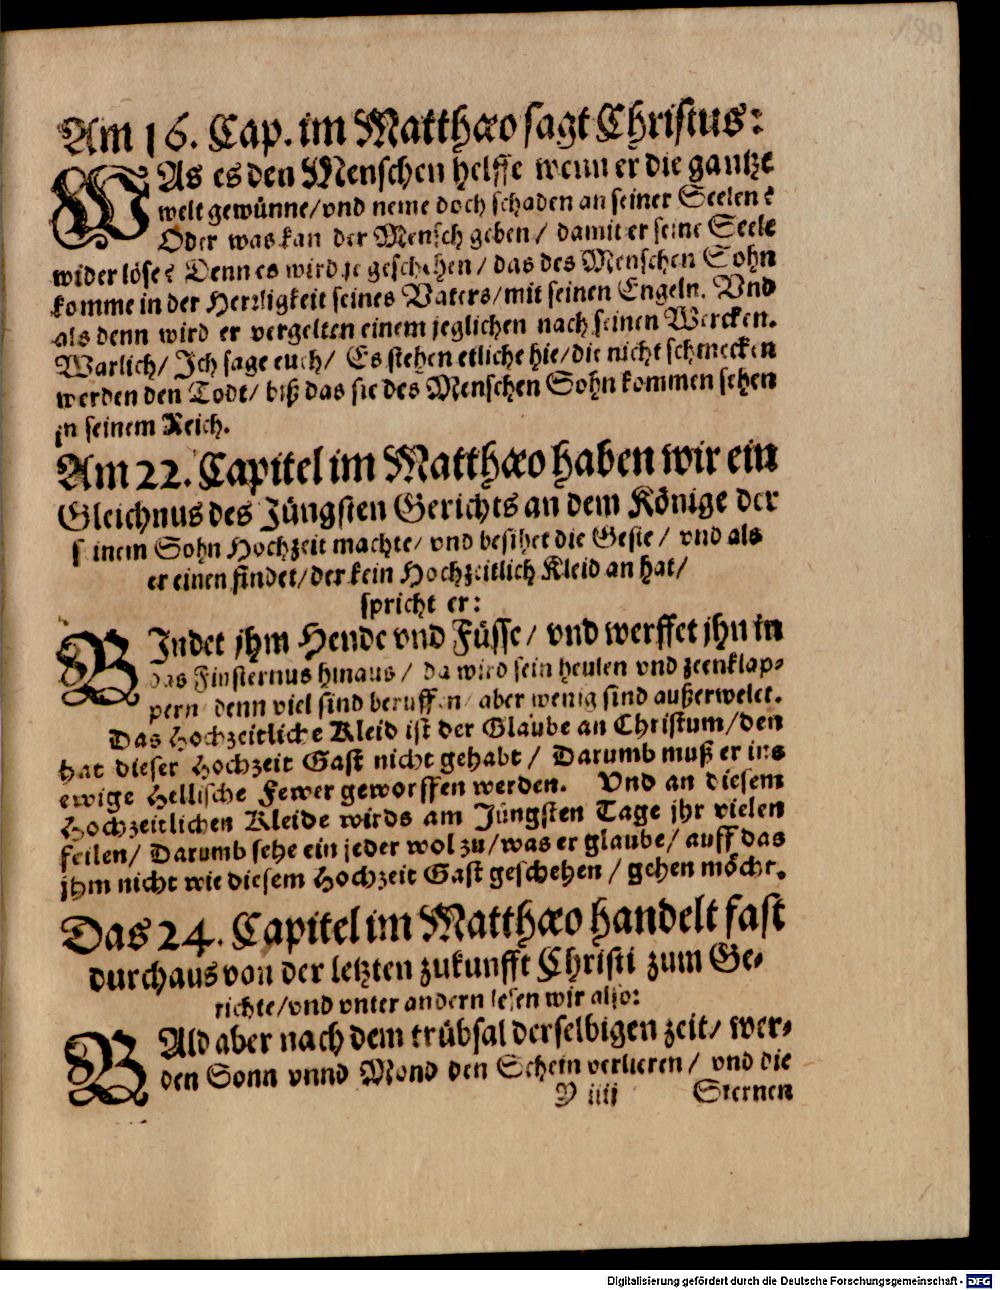 180
Am 16. Cap. im Matthæo sagt Christus:
WAs es den Menschen helffe wenn er die gantze
welt gewünne/vnd neme doch schaden an seiner Seelen?
Oder was kan der Mensch geben/ damit er seine Seele
wider löse? Denn es wird je geschehen/ das des Menschen Sohn
komme in der Herrligkeit seines Vaters/mit seinen Engeln. Vnd
als denn wird er vergelten einem jeglichen nach seinen Wercken.
Warlich/ Ich sage euch/ Es stehen etliche hie/die nicht schmecken
werden den Todt/ biß das sie des Menschen Sohn kommen sehen
in seinem Reich.
Am 22. Capitel im Matthæo haben wir ein
Gleichnus des Jüngsten Gerichts an dem Könige der
seinem Sohn Hochzeit machte/ vnd besihet die Geste/ vnd als
er einen findet/der kein Hochzeitlich Kleid an hat/
spricht er:
BIndet jhm Hende vnd Füsse/ vnd werffet jhn in
das Finsternus hinaus/ da wird sein heulen vnd zeenklap-
pern denn viel sind beruffen/ aber wenig sind außerwelet.
Das Hochzeitliche Kleid ist der Glaube an Christum/den
hat dieser Hochzeit Gast nicht gehabt/ Darumb muß er ins
ewige Hellische Fewer geworffen werden. Vnd an diesem
Hochzeitlichen Kleide wirds am Jüngsten Tage jhr vielen
feilen/ Darumb sehe ein jeder wol zu/was er glaube/ auff das
jhm nicht wie diesem Hochzeit Gast geschehen/ gehen möcht.
Das 24. Capitel im Matthæo handelt fast
durchaus von der letzten zukunfft Christi zum Ge-
richte/vnd vnter andern lesen wir also:
BAld aber nach dem trübsal derselbigen zeit/ wer-
den Sonn vnnd Mond den Schein verlieren/ vnd die
Y iiij Sternen
Digitalisierung gefördert durch die Deutsche Forschungsgemeinschaft - DFG